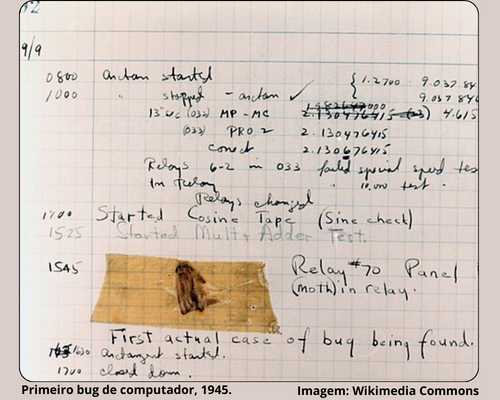 9/9
0800 Antan started { 1.2700 9.037 84
1000 " stopped - antan ✓ 9.037 846
13" uc (032) MP - MC 2.130476415 (-3) 4.615
(033) PRO 2 2.130476415
conect 2.130676415
Relays 6-2 in 033 failed special speed tes
In Relay " 10,000 test .
Relays changed
1100 Started Cosine Tape (Sine check)
1525 Started Mult + Adder Test.
1545 Relay #70 Panel
(moth) in relay.
First actual case of bug being found.
1630 Antangent started.
1700 closed down.
Primeiro bug de computador, 1945. Imagem: Wikimedia Commons